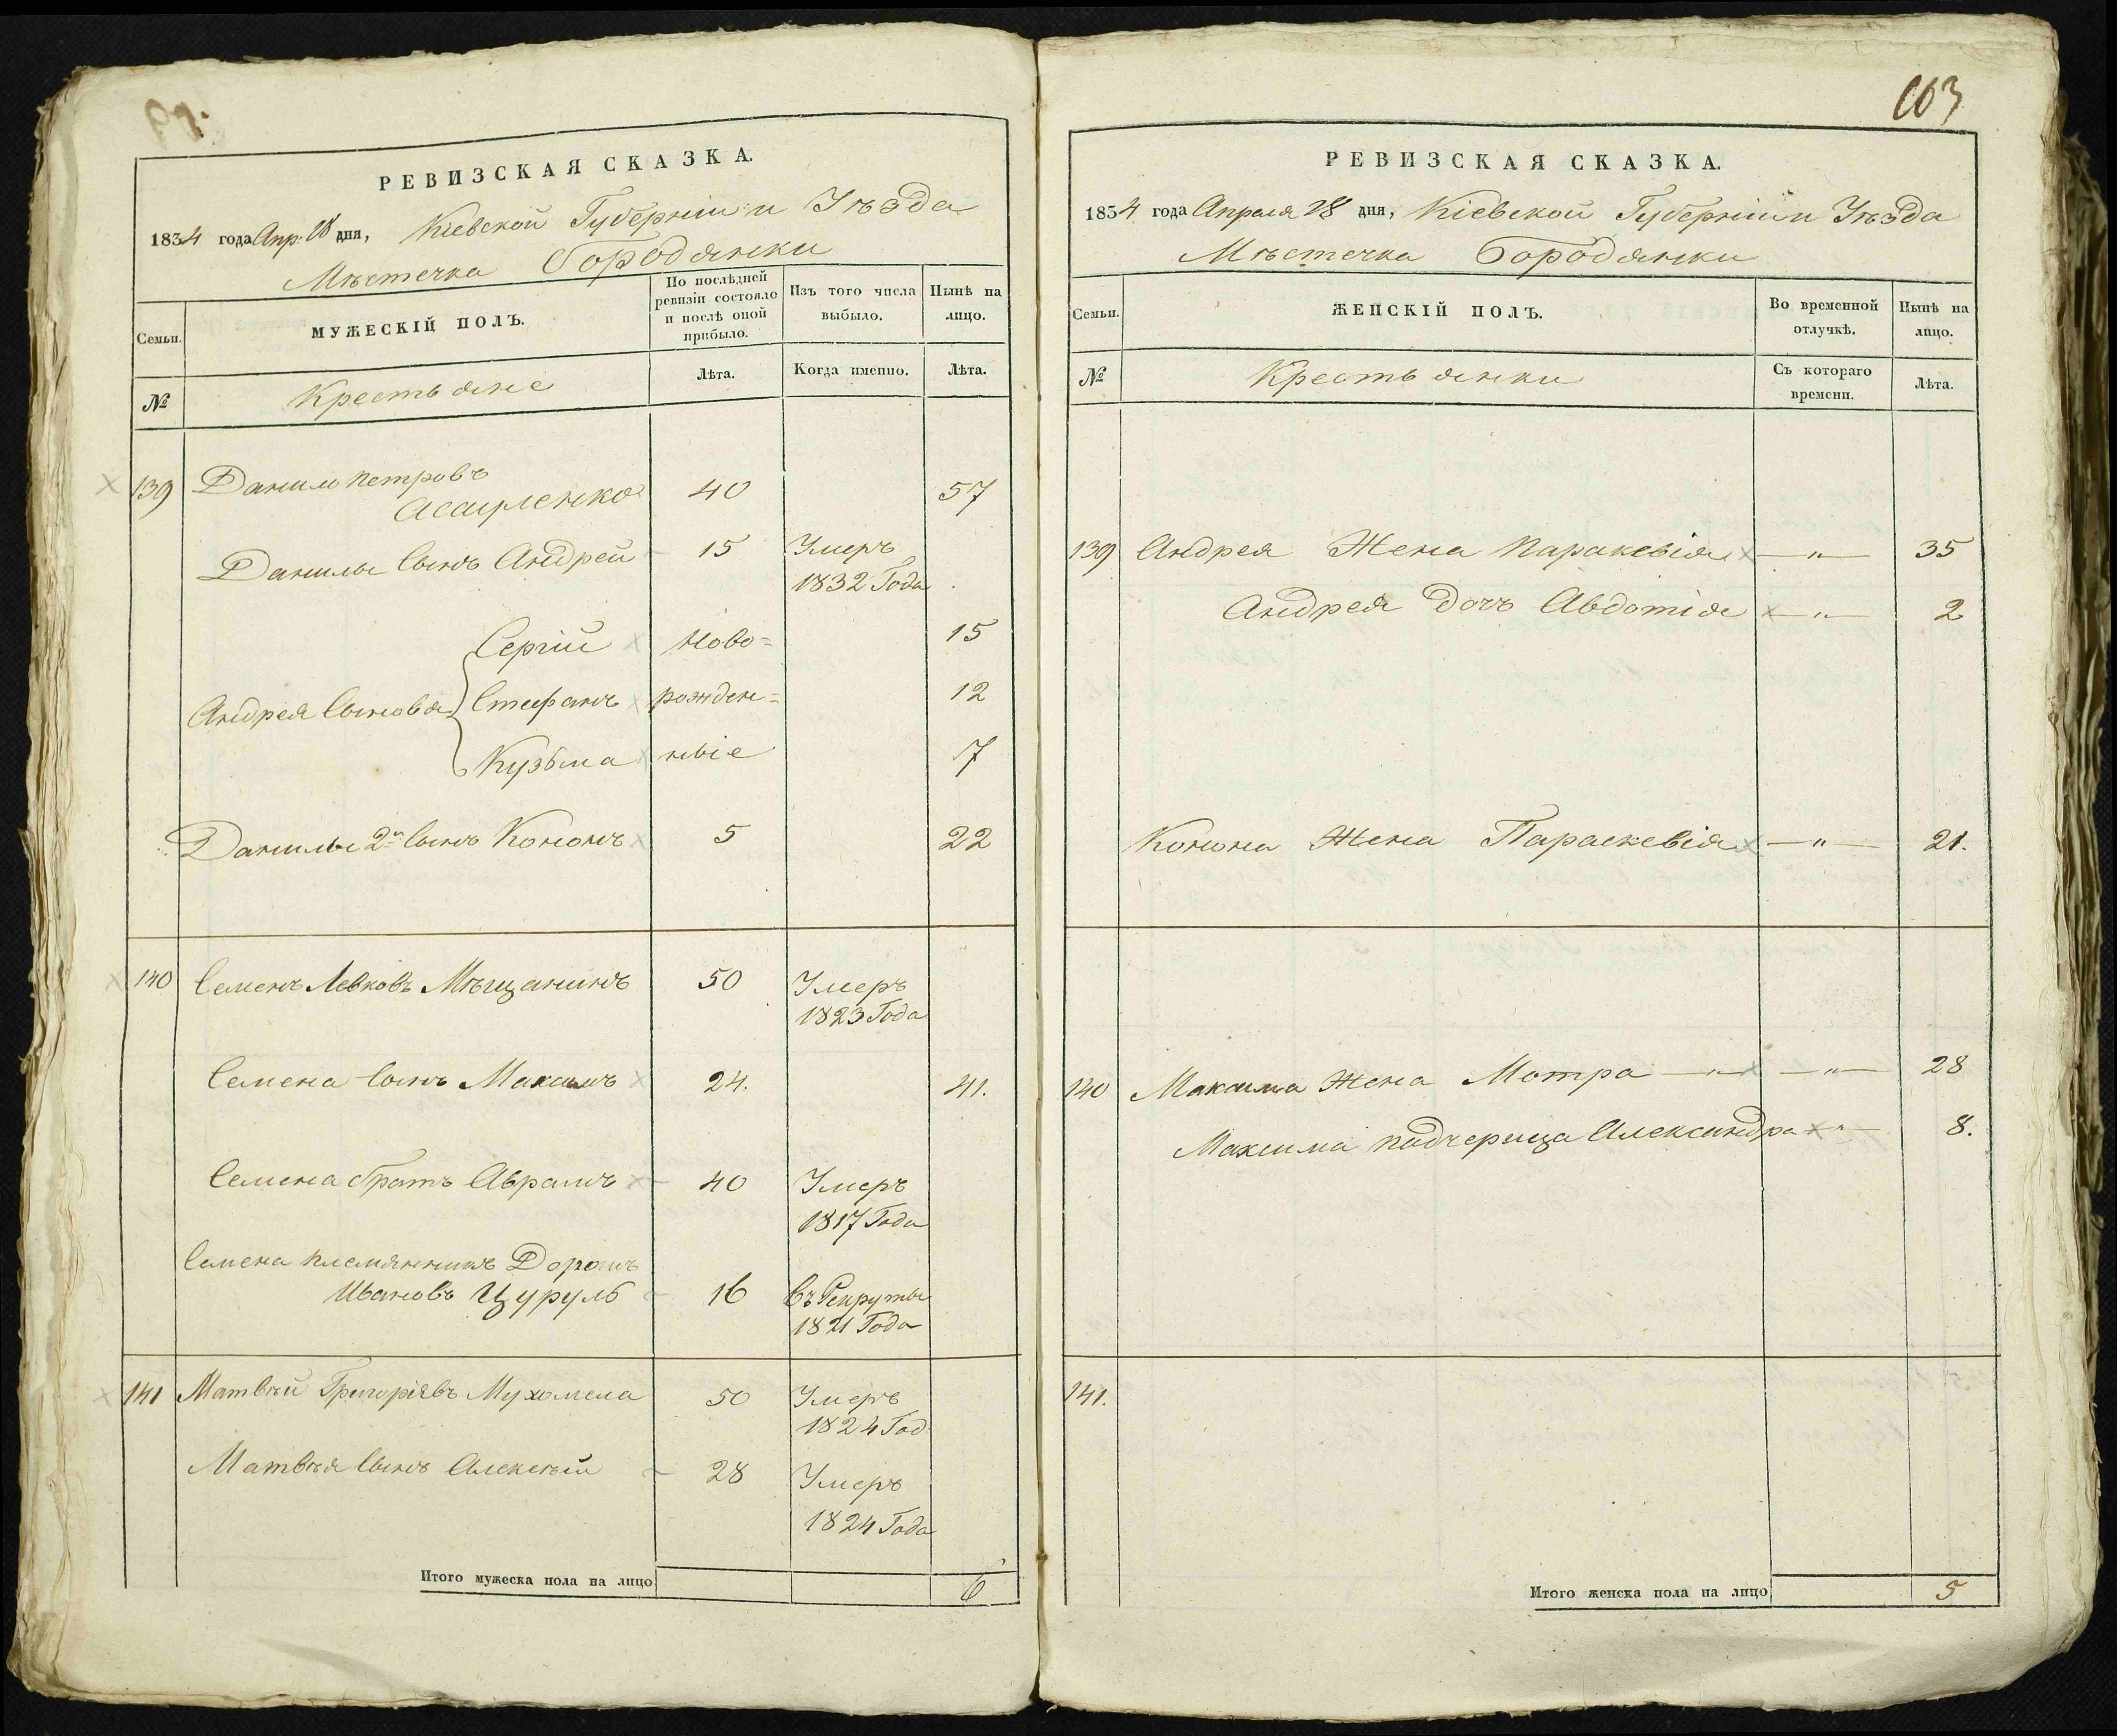 РЕВИЗСКАЯ СКАЗКА.
1834 года Апр: 28 дня, Кіевской Губерніи и Уѣзда
Мѣстечка Бородянки
Семьи.
МУЖЕСКІЙ ПОЛЪ.
По послѣдней ревизіи состояло и послѣ оной прибыло.
Изъ того числа выбыло.
Нынѣ на лицо.
№
Крестьяне
Лѣта.
Когда именно.
Лѣта.
139 Данило Петровъ 40 57
Данилы Сынъ Андрей 15 Умеръ
1832 Года
Сергій Ново= 15
Андрея Сыновья Стефанъ рожден= 12
Кузьма ныіе 7
Данилы 2й Сынъ Кононъ 5 22
140 Семенъ Левковъ Мѣщанинъ 50 Умеръ
1823 Года
Семена Сынъ Максимъ 24. 41.
Семена братъ Аврамъ 40 Умеръ
1817 Года
Семена племянникъ Дорошъ
Ивановъ Цуруль 16 Въ Рекруты
1821 Года
141 Матвѣй Григоріявъ Мухомела 50 Умеръ
1824 Год
Матвѣя Сынъ Алексѣй 28 Умеръ
1824 Года
Итого мужеска пола на лицо 6
103
РЕВИЗСКАЯ СКАЗКА.
1834 года Апреля 28 дня, Кіевской Губерніи и Уѣзда
Мѣстечка Бородянки
Семьи.
ЖЕНСКІЙ ПОЛЪ.
Во временной отлучкѣ.
Нынѣ на лицо.
№
Крестьянки
Съ котораго времени.
Лѣта.
139 Андрея Жена Паракевія — " — 35
Андрея Дочъ Авдотія — " — 2
Конона Жена Параскевія — " — 21.
140 Максима Жена Мотра — " — — " — 28
Максима падчерица Александра — " — 8.
141.
Итого женска пола на лицо 5